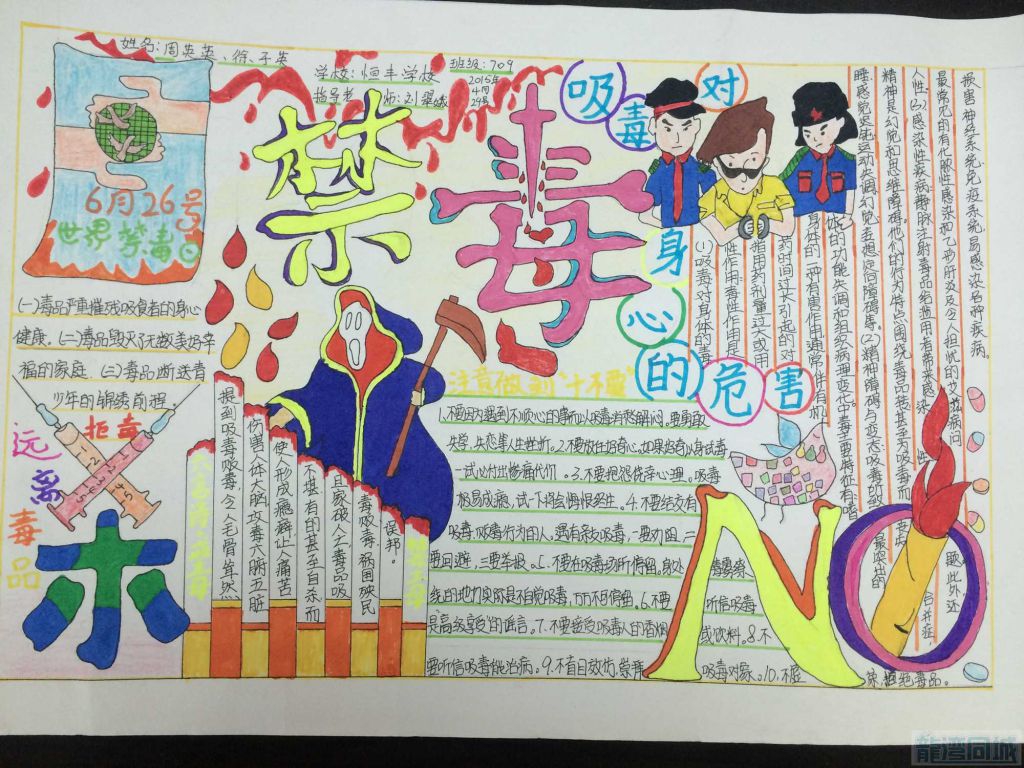 姓名:周英英、徐子英
学校:恒丰学校
班级:709
指导老师:刘翠娥
2015年4月29号
禁毒
6月26号
世界禁毒日
(一)毒品严重摧残吸食者的身心
健康。(二)毒品毁灭了无数美好幸
福的家庭。(三)毒品断送青
少年的锦绣前程。
拒毒
远离毒品
提到吸毒贩毒,令人毛骨耸然
伤害人体大脑,攻毒六腑五脏
使人形成瘾癖,让人痛苦
不堪有的甚至自杀而
且家破人亡毒品吸
毒贩毒,祸国殃民
误邦。
吸毒对身心的危害
(1)吸毒对身体的毒
性作用:毒性作用是
指用药剂量过大或用
药时间过长引起的对
身体的一种有害作用,通常伴有机
体的功能失调和组织病理变化。中毒主要特征有:嗜
睡、感觉迟钝、运动失调、幻觉、妄想、定向障碍等。(2)精神障碍与变态:吸毒所致最突出的
精神是幻觉和思维障碍。他们的行为特点围绕毒品转,甚至为吸毒而
人性。(3)感染性疾病:静脉注射毒品给滥用者带来感染性
最常见的有化脓性感染和乙型肝炎及令人担忧的艾滋病问题。此外,还
损害神经系统、免疫系统,易感染各种疾病。
注意做到"十不要"
1.不要因为遇到不顺心的事而以吸毒消愁解闷。要勇敢
失学、失恋等人生挫折。2.不要放任好奇心,如果好奇以身试毒
一试必付出惨痛代价。3.不要抱侥幸心理。吸毒
极易成瘾,试一下将会悔恨终生。4.不要结交有
吸毒、贩毒行为的人。遇有亲友吸毒,一要劝阻,二
要回避,三要举报。5.不要在吸毒场所停留,身处
线的地方实际是在自觉吸毒,万万不可停留。6.不要听信吸毒
是高级享受的谣言。7.不要接受吸毒人的香烟或饮料。8.不
要听信吸毒能治病。9.不盲目效仿、崇拜吸毒对象。10.不要
NO
拒绝毒品。
龍灣同城